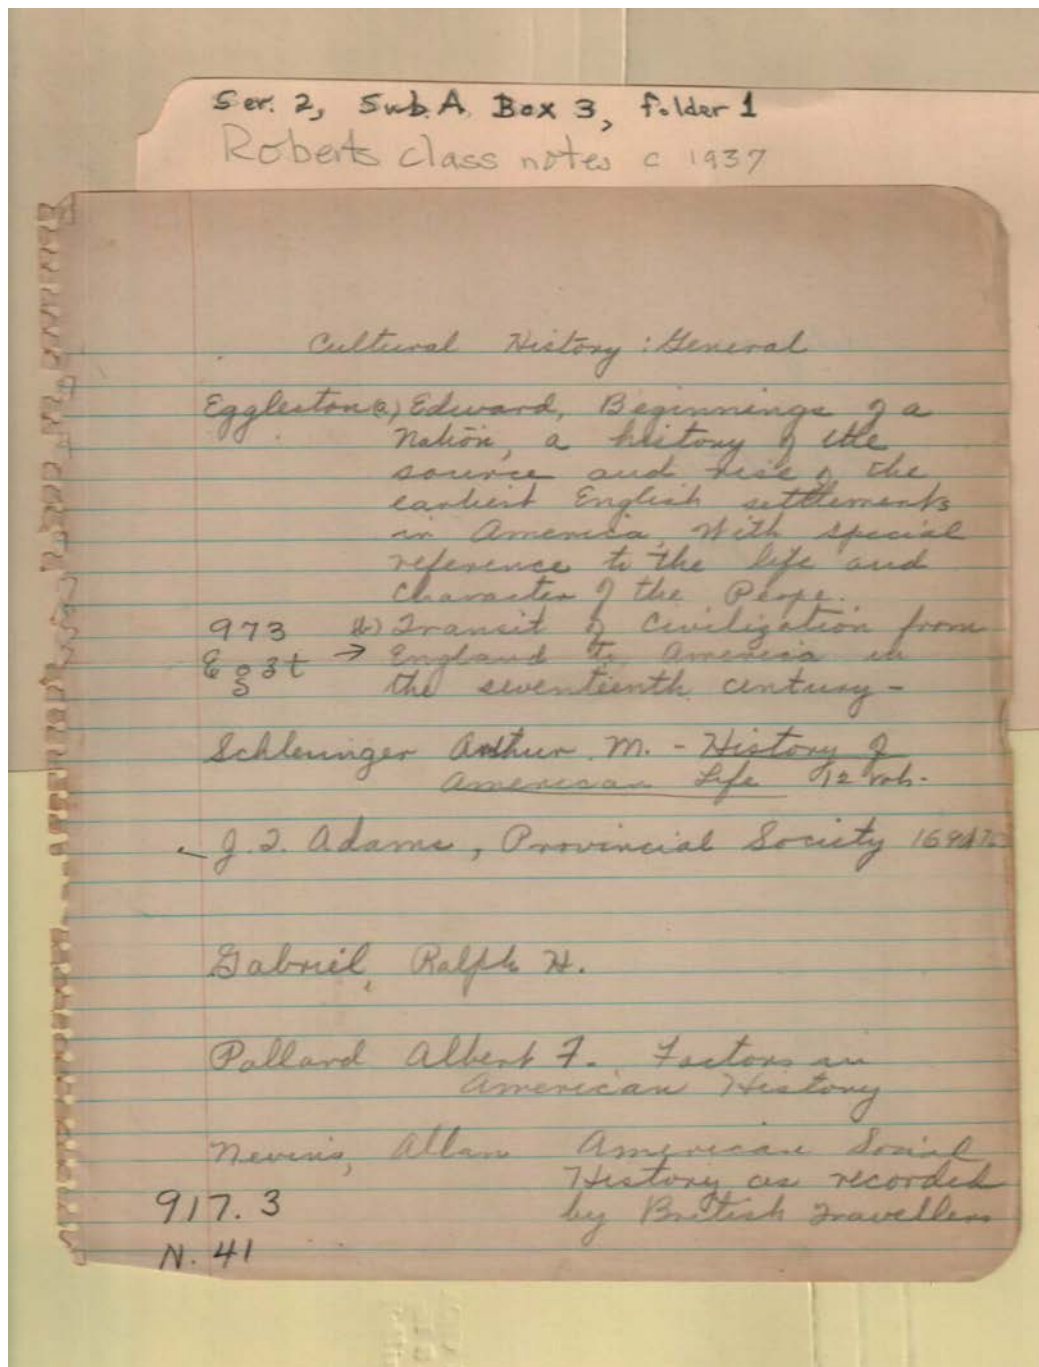 Ser. 2, Sub. A Box 3, folder 1
Roberts class notes c 1937
Cultural History : General
Eggleston a) Edward, Beginnings of a
Nation, a history of the
source and rise of the
earliest English settlements
in America, With special
reference to the life and
character of the Peope.
973 b) Transit of Civilization from
Eg3t → England to America in
the seventeenth century -
Schlesinger Arthur M. - History of
American Life 12 vols.
J. T. Adams, Provincial Society
Gabriel, Ralph H.
Pollard Albert F. Factors in
American History
Nevins, Allan American Social
History as recorded
917.3 by British Travellers
N. 41